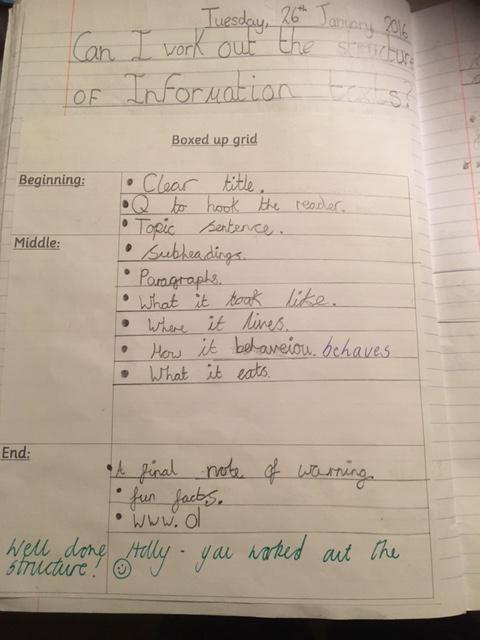 Tuesday, 26th January 2016
Can I work out the structure
of Information texts?
Boxed up grid
Beginning:
• Clear title.
• Q to hook the reader.
• Topic sentence.
Middle:
• Subheadings.
• Paragraphs.
• What it look like.
• Where it lives.
• How it behaveiou. behaves
• What it eats.
End:
• A final note of warning.
• fun facts.
• www. Ol
Well done Holly - you worked out the
structure! ☺